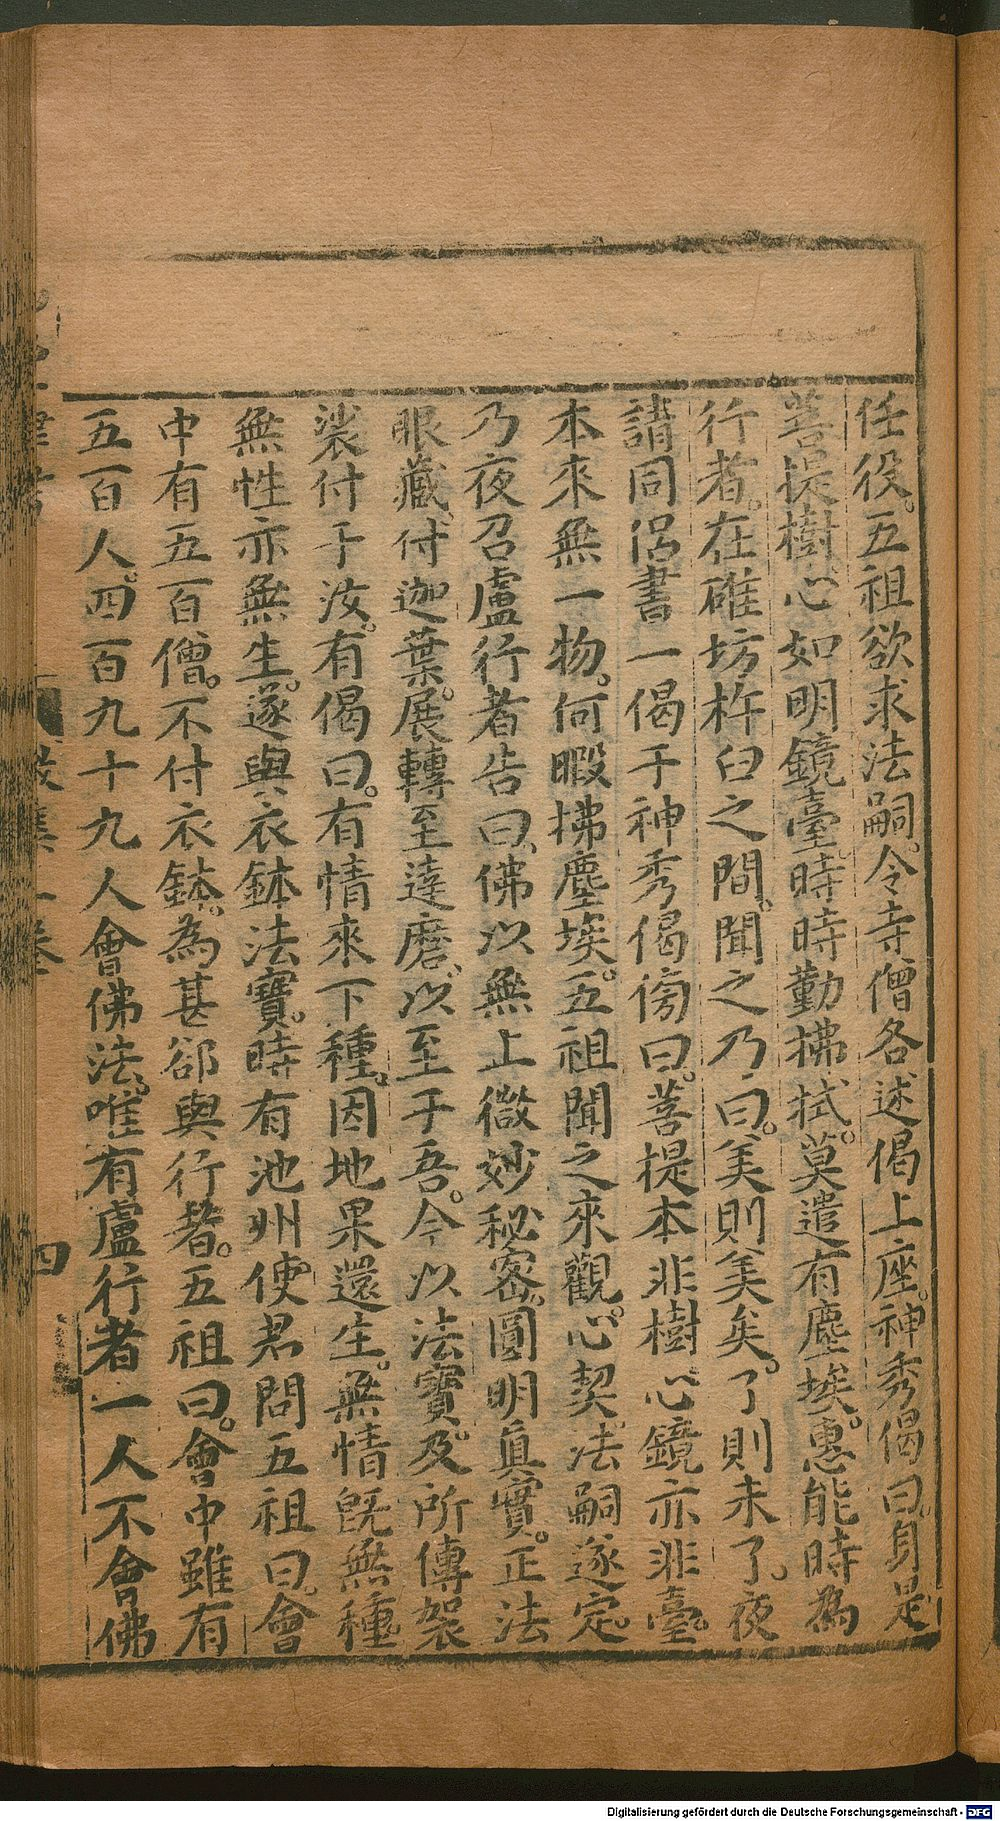 任役。五祖欲求法嗣。令寺僧各述偈上座。神秀偈曰。身是
菩提樹。心如明鏡臺。時時勤拂拭。莫遣有塵埃。惠能時為
行者。在碓坊杵臼之間。聞之乃曰。美則美矣。了則未了。夜
請同侶書一偈于神秀偈傍曰。菩提本非樹心鏡亦非臺。
本來無一物。何暇拂塵埃。五祖聞之來觀。心契。法嗣遂定。
乃夜召盧行者告曰、佛以無上微妙秘密。圓明眞實。正法
眼藏、付迦葉。展轉至達磨。以至于吾。今以法寶。及所傳袈
裟付于汝。有偈曰。有情來下種。因地果還生。無情既無種。
無性亦無生。遂與衣鉢法寶。時有池州使君問五祖曰。會
中有五百僧。不付衣鉢。為甚卻與行者。五祖曰。會中雖有
五百人。四百九十九人會佛法。唯有盧行者一人不會佛
四